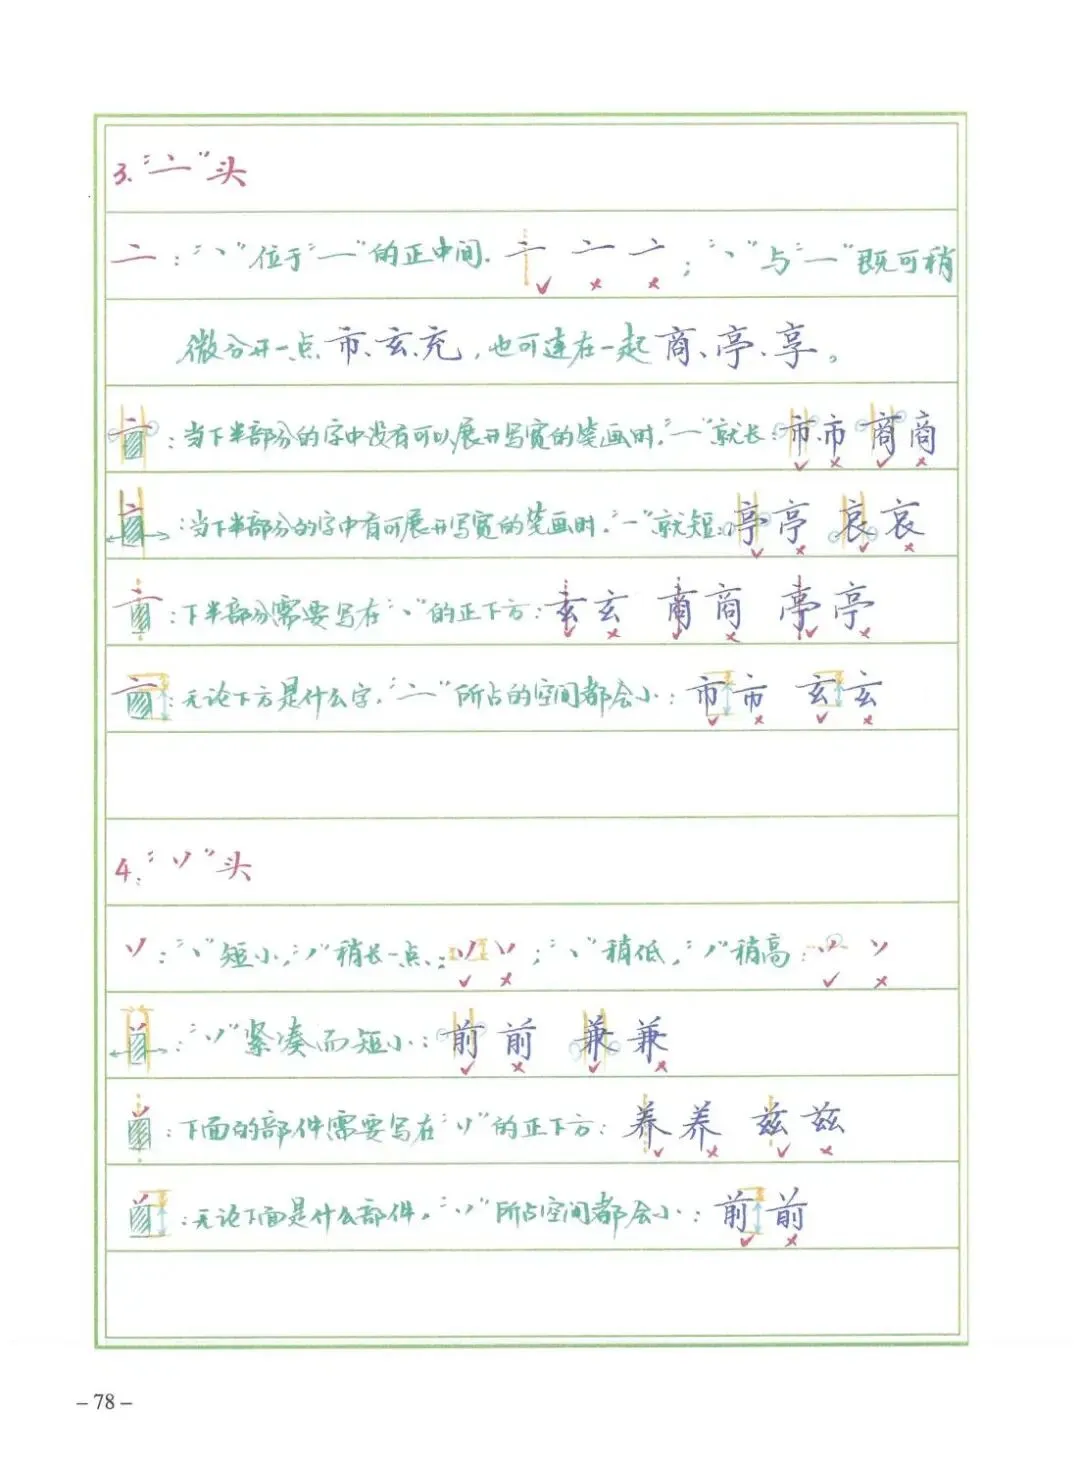 3."亠"头
亠:"丶"位于"一"的正中间.亠 亠 亠;"丶"与"一"既可稍
微分开一点市、玄、充,也可连在一起商、亭、享。
:当下半部分的字中没有可以展开写宽的笔画时,"一"就长:市、市 商 商
:当下半部分的字中有可展开写宽的笔画时,"一"就短:亭 亭 哀 哀
:下半部分需要写在"丶"的正下方:玄 玄 商 商 亭 亭
:无论下方是什么字,"亠"所占的空间都会小:市 市 玄 玄
4."丷"头
丷:"丶"短小,"丿"稍长一点:丷 丷;"丶"稍低,"丿"稍高:丷 丷
:"丷"紧凑而短小:前 前 兼 兼
:下面的部件需要写在"丷"的正下方:养 养 兹 兹
:无论下面是什么部件,"丷"所占空间都会小:前 前
-78-